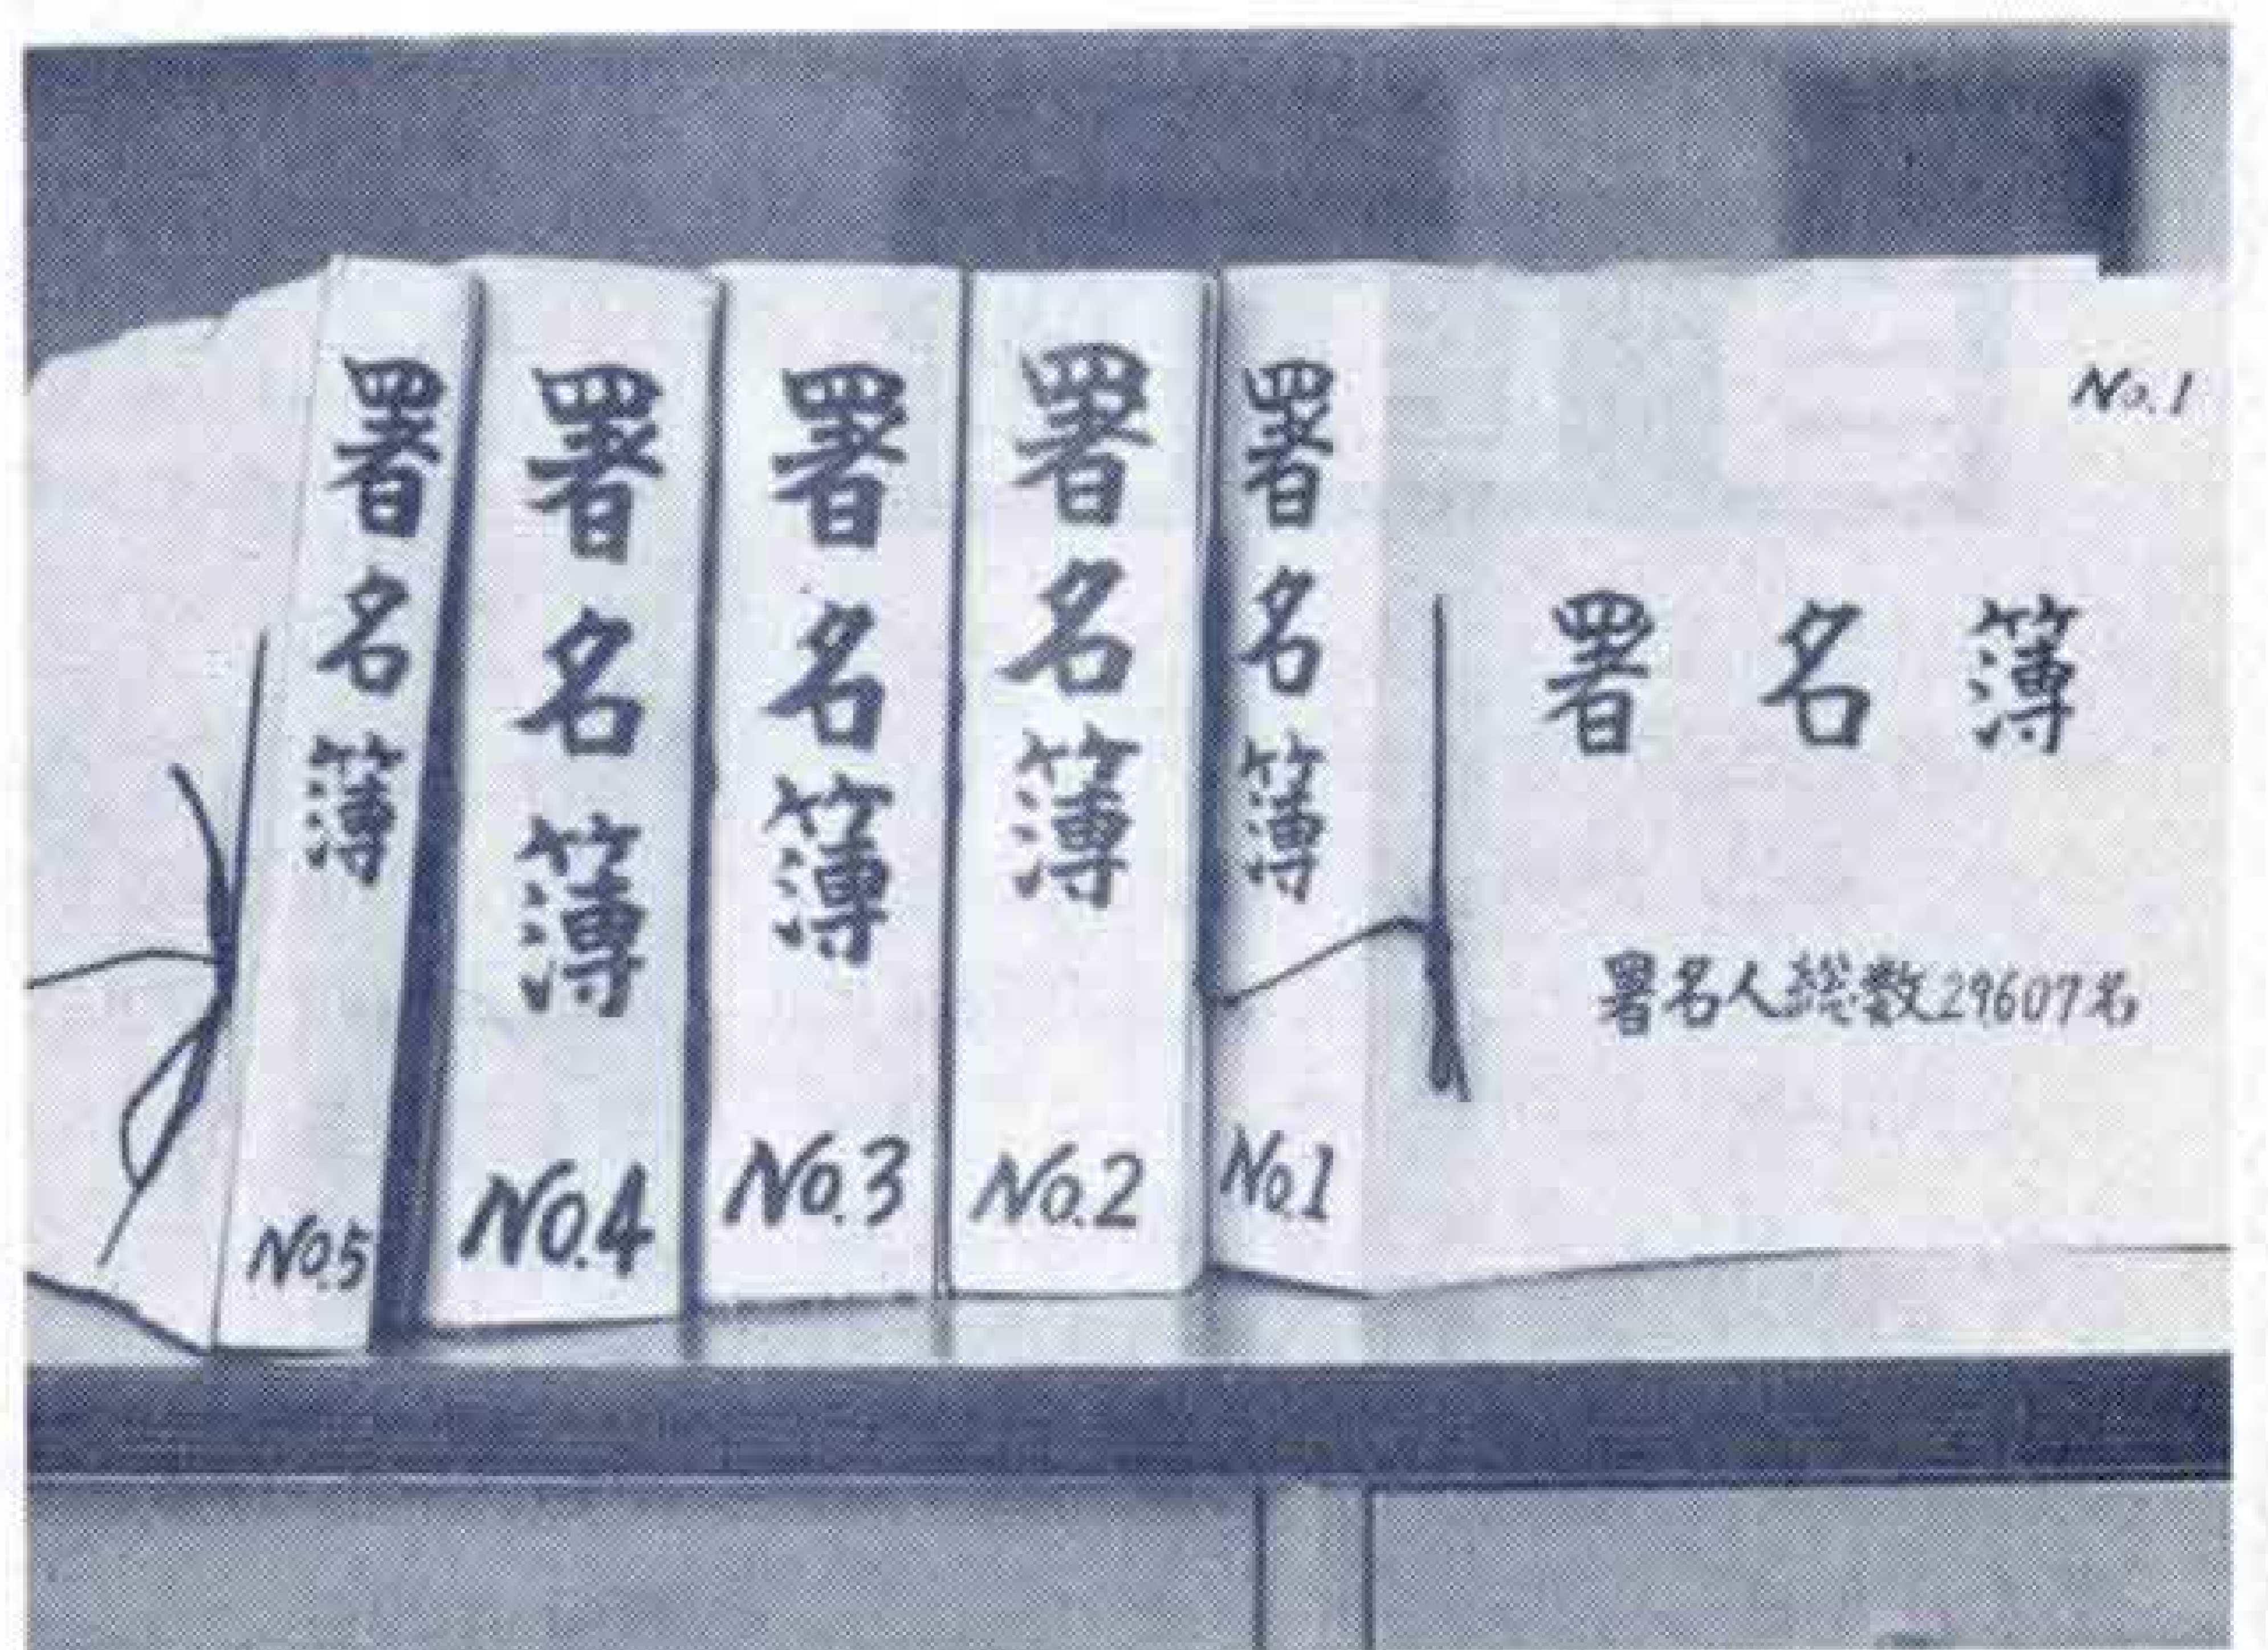 署名簿
No.5
署名簿
No.4
署名簿
No.3
署名簿
No.2
署名簿
No.1
No.1
署名簿
署名人総数29,607名